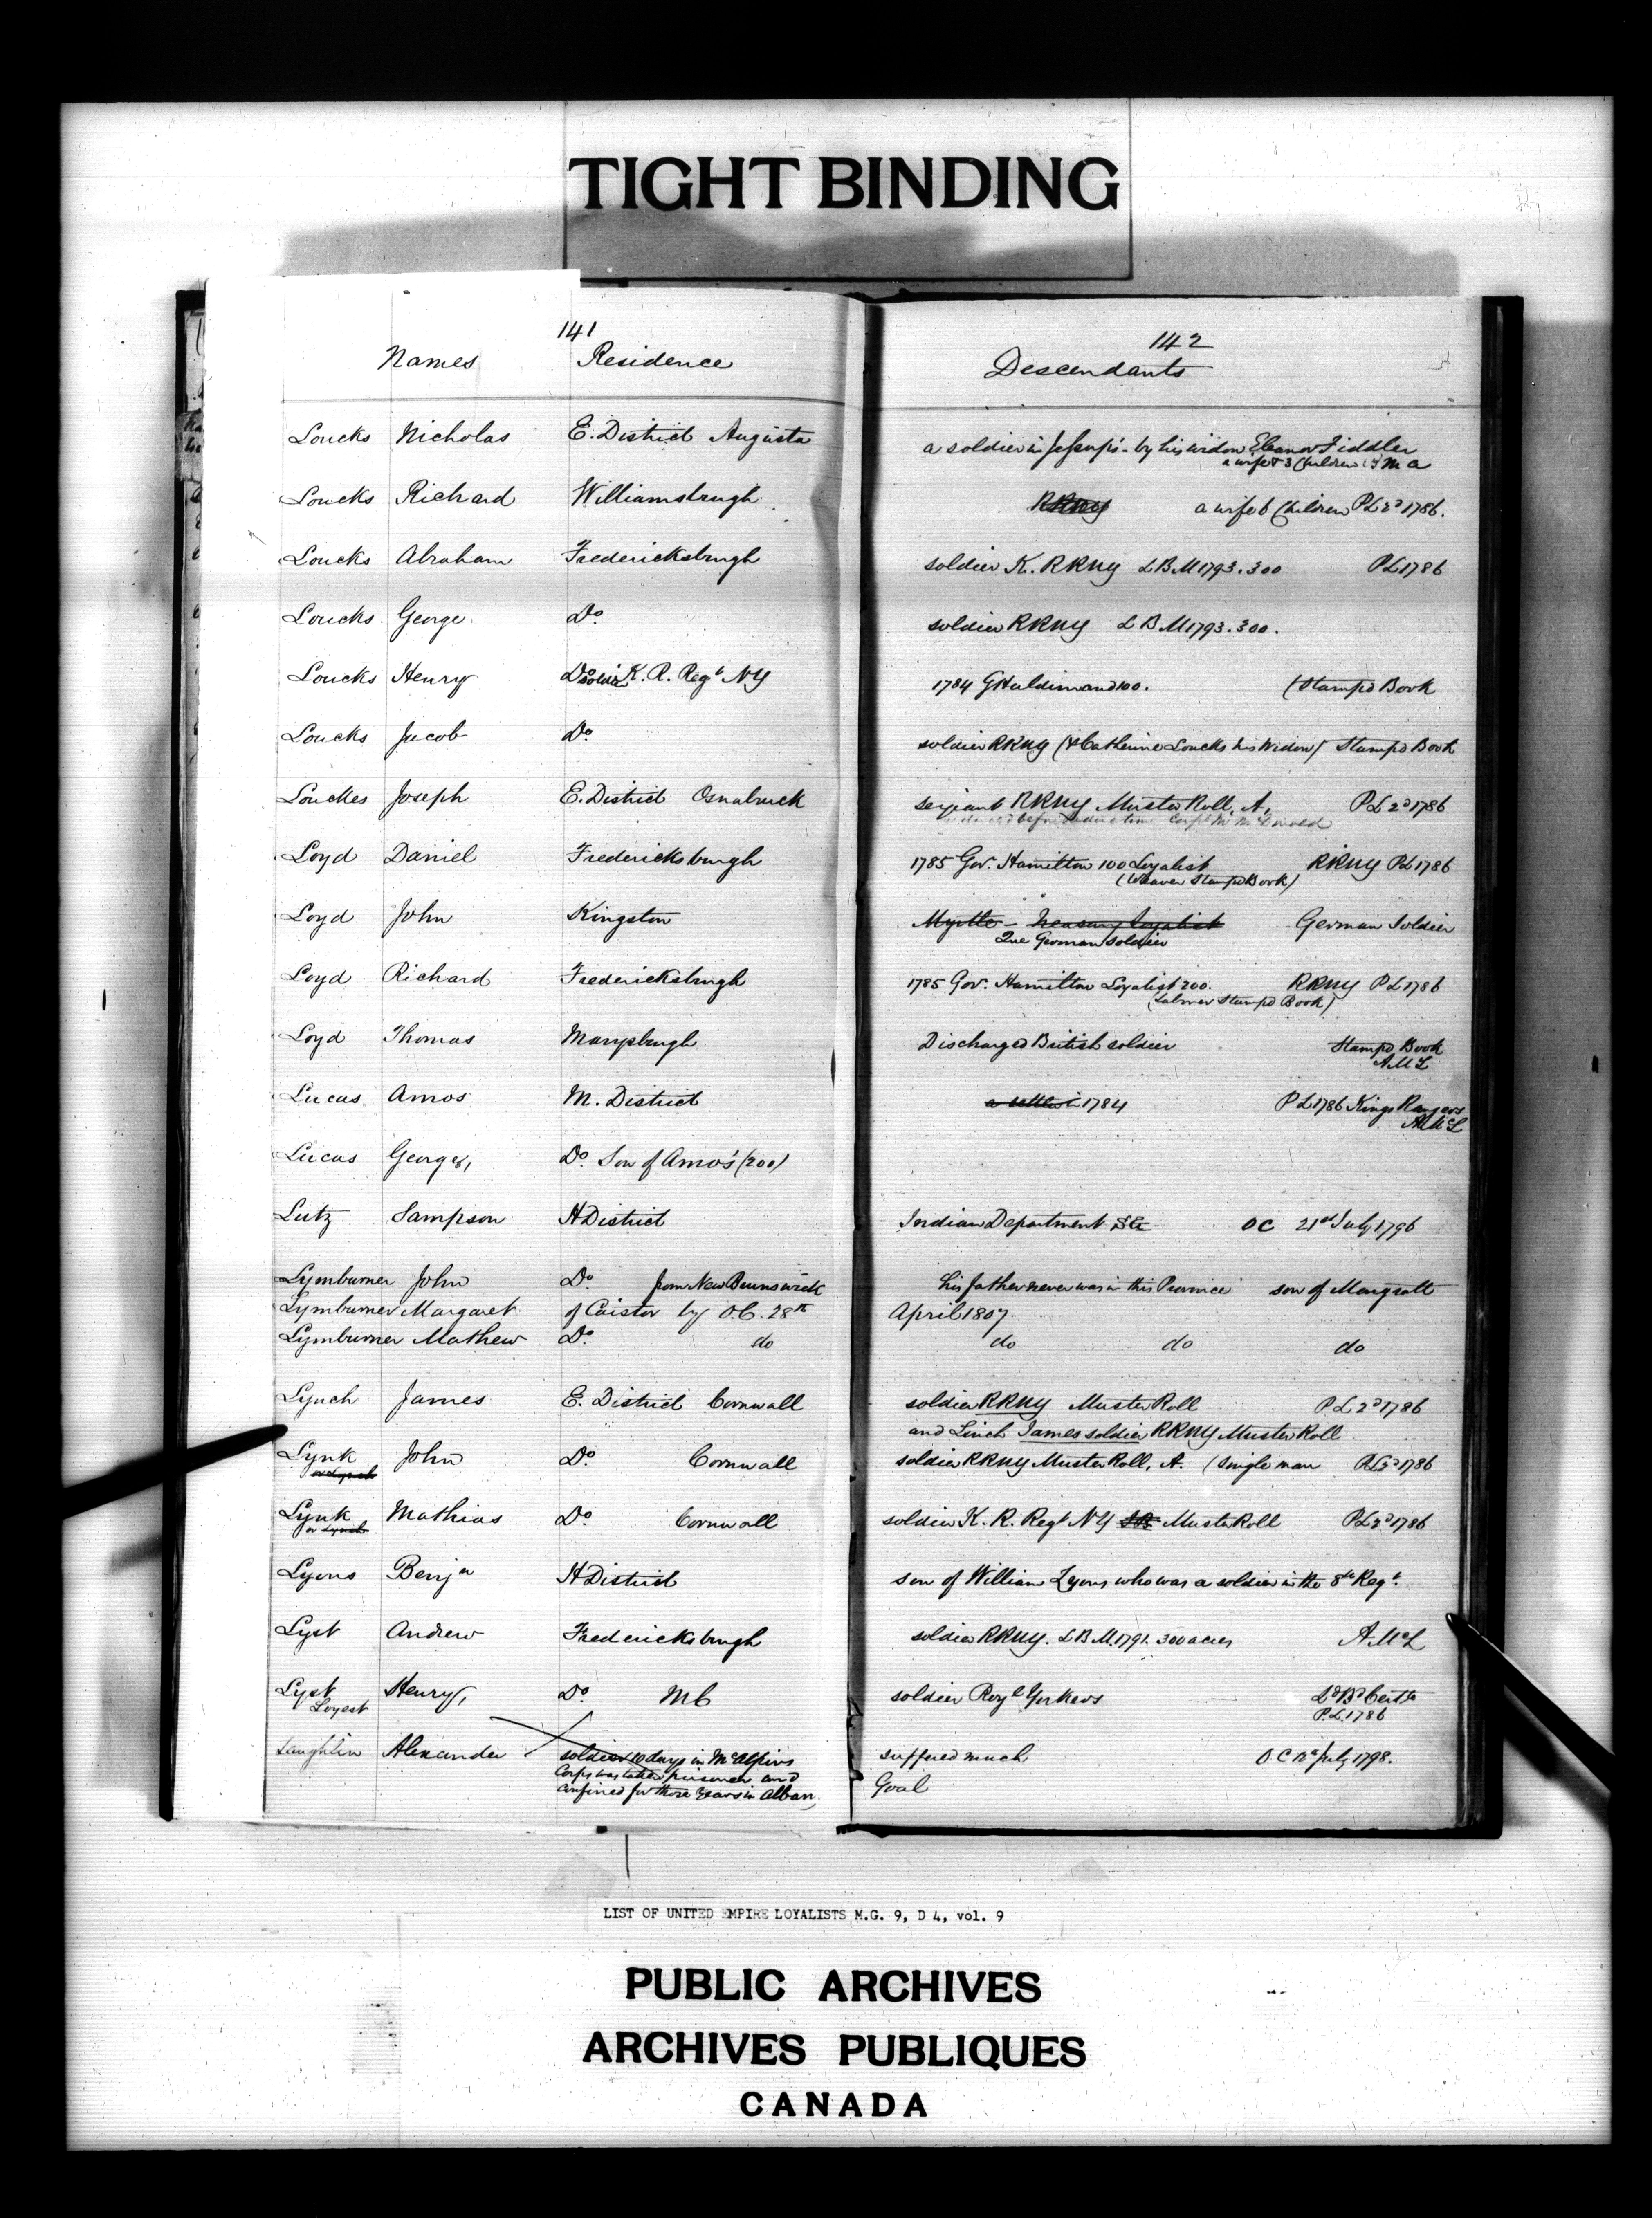 TIGHT BINDING
141
Names Residence
142
Descendants
Loucks Nicholas E. District Augusta a soldier in Jessup's - by his widow Eleanor Fiddler
a wife & 3 Children
Loucks Richard Williamsburgh RRNY a wife 6 Children PL 2d 1786.
Loucks Abraham Fredericksburgh soldier K. RRNY LBM 1793. 300 PL 1786
Loucks George Do. soldier RRNY LBM 1793. 300.
Loucks Henry Do. soldier K. R. Regt NY 1784 GHaldimand 100. (Stamp'd Book
Loucks Jacob Do. soldier RRNY (& Catherine Loucks his Widow) Stamp'd Book
Louckes Joseph E. District Osnabruck serjeant RRNY Muster Roll, A, PL 2d 1786
Loyd Daniel Fredericksburgh 1785 Gov. Hamilton 100 Loyalist RRNY PL 1786
(Weaver Stamp'd Book)
Loyd John Kingston Myrtle - Treasury Loyalist German Soldier
Que German soldier
Loyd Richard Fredericksburgh 1785 Gov. Hamilton Loyalist 200. RRNY PL 1786
(Labourer Stamp'd Book)
Loyd Thomas Marysburgh Discharged British soldier Stamp'd Book
A McL
Lucas Amos M. District a settler in 1784 PL 1786 Kings Rangers
A McL
Lucas George, Do. Son of Amos's (200)
Lutz Sampson H District Indian Department OC 21st July 1796
Lymburner John Do. from New Brunswick his father never was in this Province son of Margratt
Lymburner Margaret of Caistor by O.C. 28th April 1807.
Lymburner Mathew Do. do do do do
Lynch James E. District Cornwall soldier RRNY Muster Roll P.L 2d 1786
and Linch James soldier RRNY Muster Roll
Lynk John Do. Cornwall soldier RRNY Muster Roll, A. (single man PL 2d 1786
or Lynch
Lynk Mathias Do. Cornwall soldier K. R. Regt NY Muster Roll PL 2d 1786
or Lynch
Lyons Benjn H District son of William Lyons who was a soldier in the 8th Regt.
Lyst Andrew Fredericksburgh soldier RRNY. LBM. 1791. 300 acres A. McL
Lyst Henry, Do. MC soldier Royl Yorkers Ld Bd Certte
Loyest P.L. 1786
Laughlin Alexander soldier 10 days in McAlpins suffered much O C July 1798.
Corps was taken prisoner and Goal
confined for three years in Alban
LIST OF UNITED EMPIRE LOYALISTS M.G. 9, D 4, vol. 9
PUBLIC ARCHIVES
ARCHIVES PUBLIQUES
CANADA